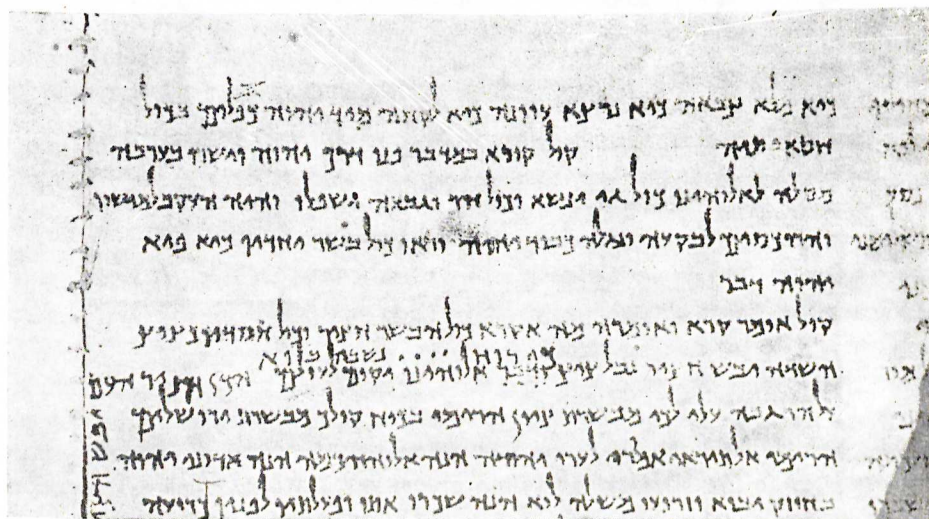 כיא מלא צבאה כיא נרצא עוונה כיא לקחה מיד יהוה כפלים בכול
חטאותיה קול קורא במדבר פנו דרך יהוה וישרו בערבה
מסלה לאלוהינו כול גי ינשא וכול הר וגבעה ישפלו והיה העקב למישור
והרכסים לבקעה ונגלה כבוד יהוה וראו כול בשר יחדיו כיא פיא
יהוה דבר
קול אומר קרא ואומרה מה אקרא כול הבשר חציר וכול חסדיו כציץ
כי רוח .... נשבה בוא
השדה יבש חציר נבל ציץ ודבר אלוהינו יקום לעולם הכן חציר העם
על הר גבה עלי לכי מבשרת ציון הרימי בכוח קולך מבשרת ירושלים
הרימי אל תיראי אמרי לערי יהודה הנה אלוהיכמה הנה אדוני יהוה
בחוזק יבוא וזרועו משלה לוא הנה שכרו אתו ופעלתיו לפניו כרועה